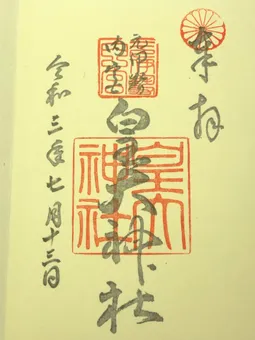 奉拝
元伊勢
内宮
皇大神社
皇大
神社
令和三年七月十三日